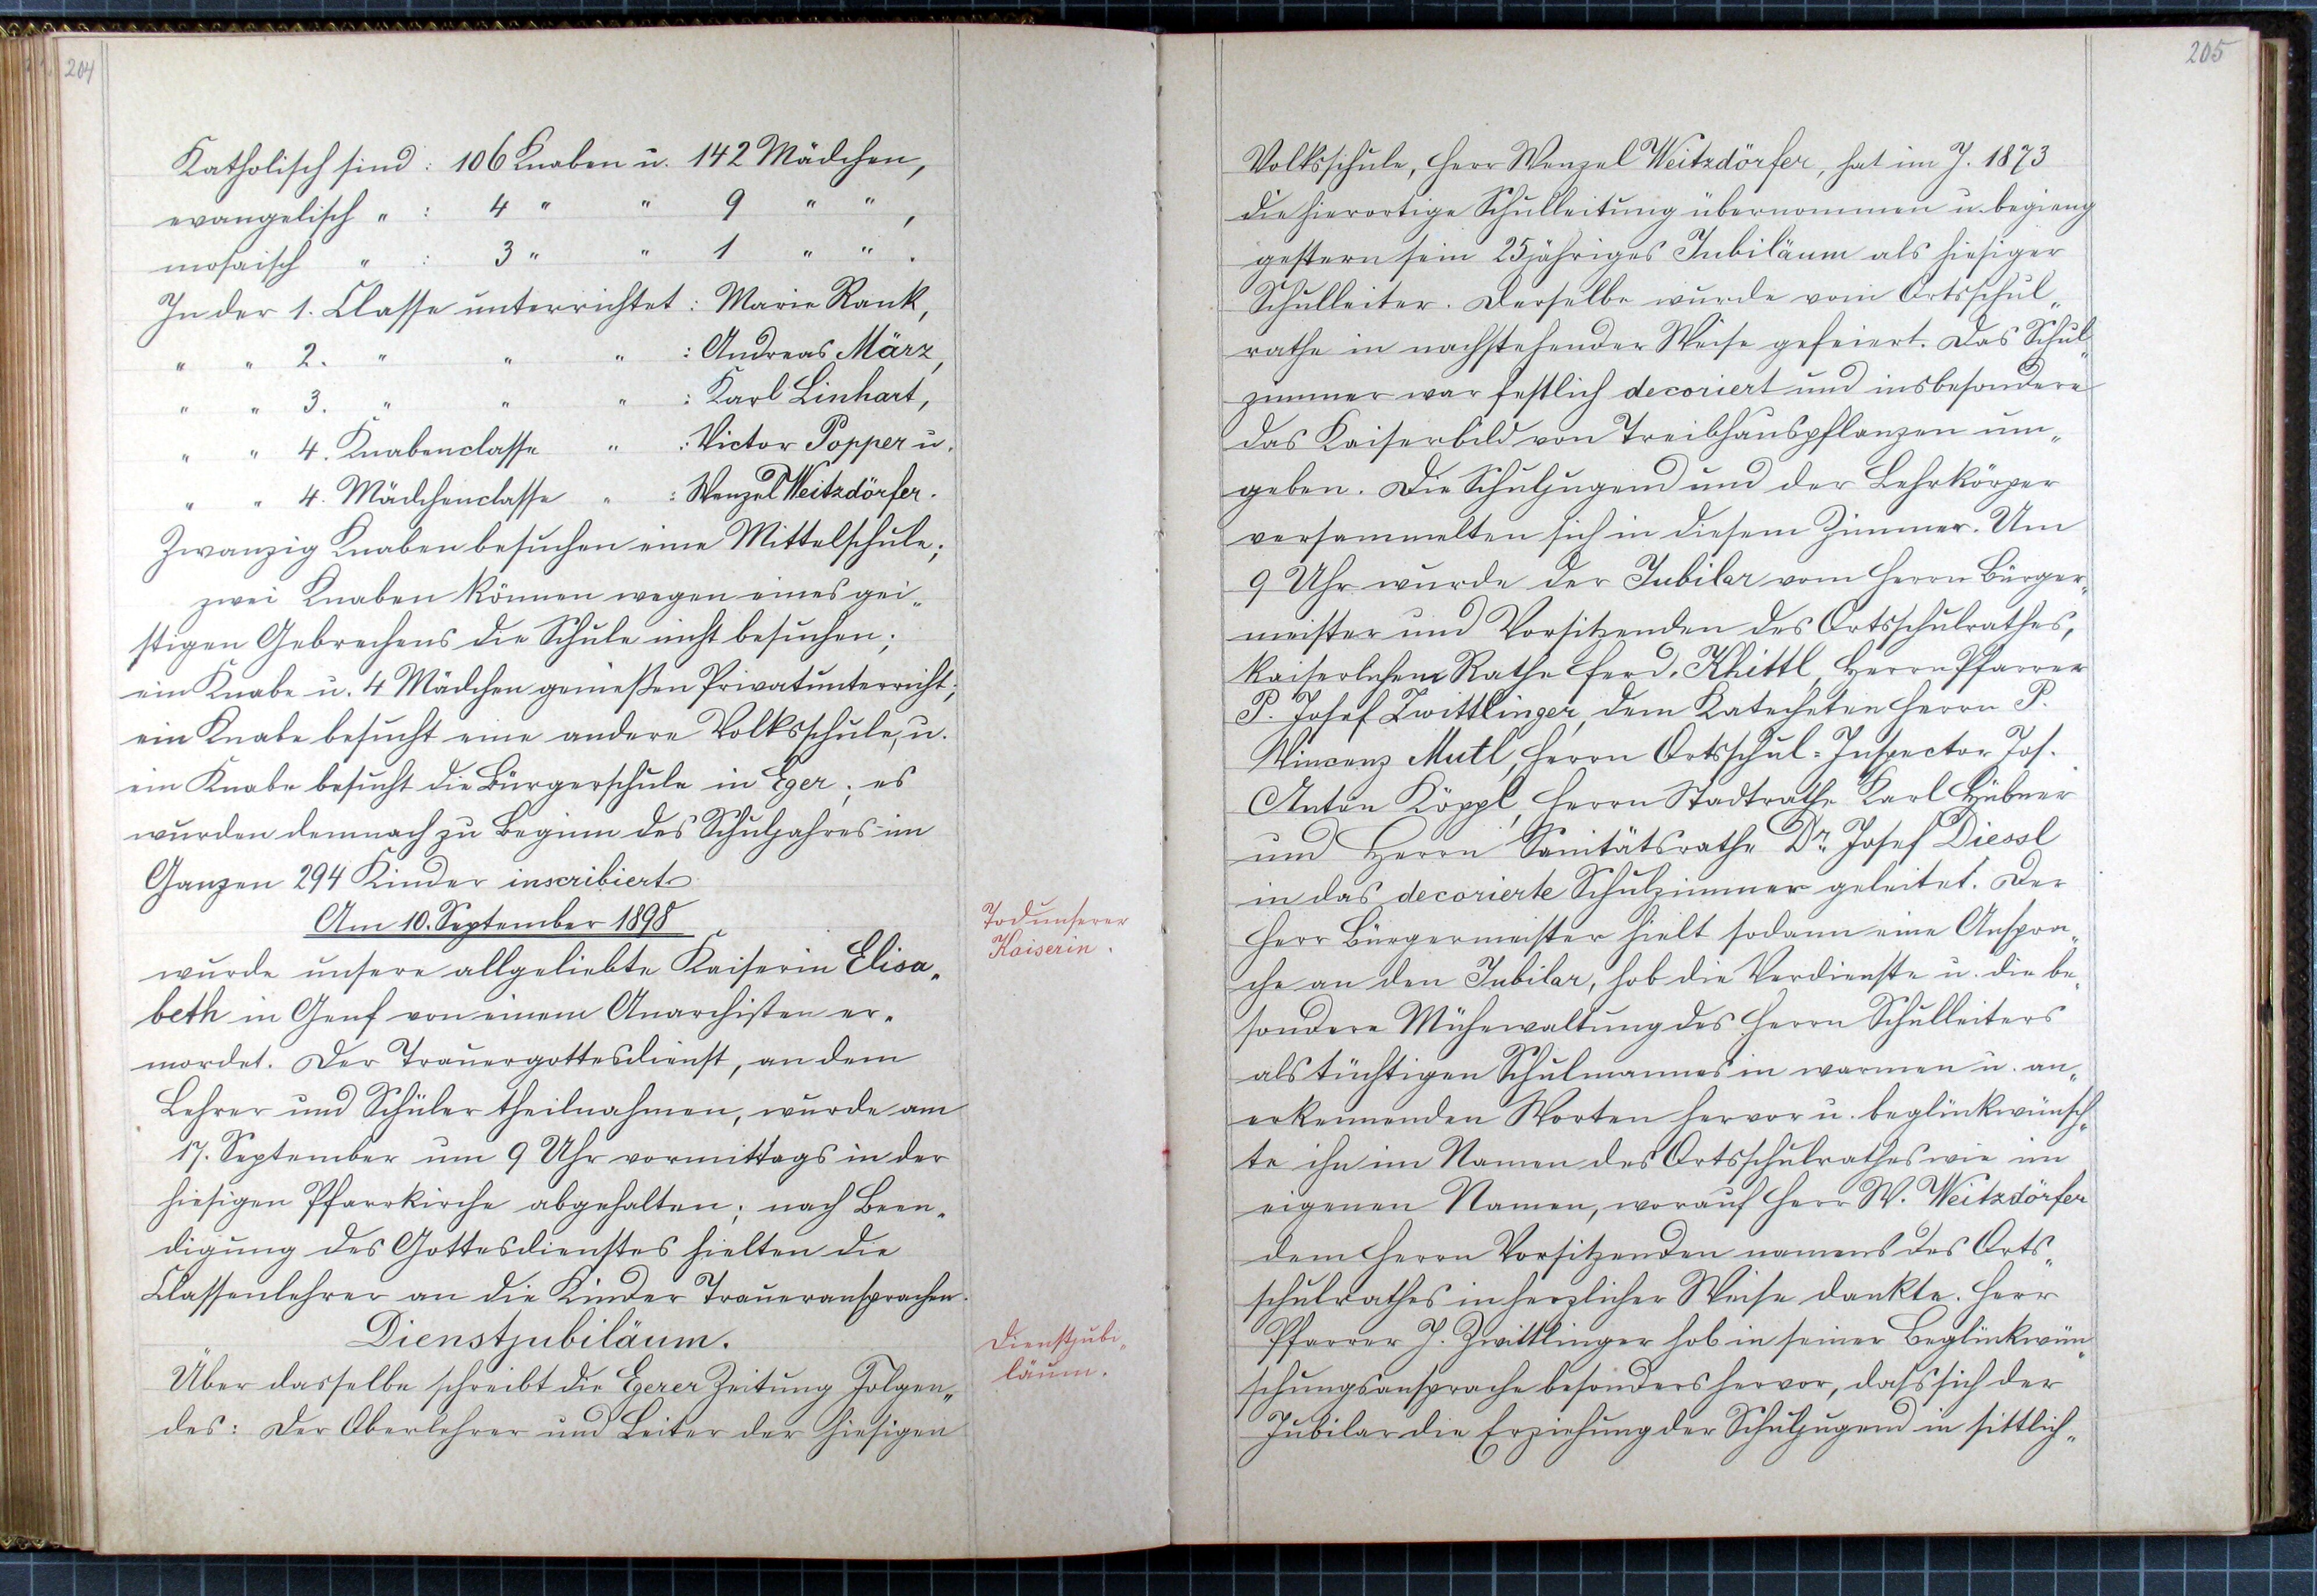 204
Katholisch sind : 106 Knaben u. 142 Mädchen,
evangelisch " : 4 " " 9 " " ,
mosaisch " : 3 " " 1 " " .
In der 1. Classe unterrichtet : Marie Rank,
" " 2. " " " : Andreas März,
" " 3. " " " : Karl Linhart,
" " 4. Knabenclasse " : Victor Popper u.
" " 4. Mädchenclasse " : Wenzel Weitzdörfer.
Zwanzig Knaben besuchen eine Mittelschule;
zwei Knaben können wegen eines gei„
stigen Gebrechens die Schule nicht besuchen;
ein Knabe u. 4 Mädchen genießen Privatunterricht;
ein Knabe besucht eine andere Volksschule, u.
ein Knabe besucht die Bürgerschule in Eger; es
wurden demnach zu Beginn des Schuljahres im
Ganzen 294 Kinder inscribiert.
Am 10. September 1898
Tod unserer
Kaiserin.
wurde unsere allgeliebte Kaiserin Elisa„
beth in Genf von einem Anarchisten er„
mordet. Der Trauergottesdienst, an dem
Lehrer und Schüler theilnahmen, wurde am
17. September um 9 Uhr vormittags in der
hiesigen Pfarrkirche abgehalten; nach Been„
digung des Gottesdienstes hielten die
Classenlehrer an die Kinder Traueransprachen.
Dienstjubiläum.
Dienstjubi„
läum.
Über dasselbe schreibt die Egerer Zeitung Folgen„
des: Der Oberlehrer und Leiter der hiesigen
205
Volksschule, Herr Wenzel Weitzdörfer, hat im J. 1873
die hierortige Schulleitung übernommen u. begieng
gestern sein 25jähriges Jubiläum als hiesiger
Schulleiter. Derselbe wurde vom Ortsschul„
rathe in nachstehender Weise gefeiert. Das Schul„
zimmer war festlich decoriert und insbesondere
das Kaiserbild von Treibhauspflanzen um„
geben. Die Schuljugend und der Lehrkörper
versammelten sich in diesem Zimmer. Um
9 Uhr wurde der Jubilar vom Herrn Bürger„
meister und Vorsitzenden des Ortsschulrathes,
kaiserlichem Rathe Ferd. Khittl, Herrn Pfarrer
P. Josef Zwittlinger, dem Katecheten Herrn P.
Vincenz Mutl, Herrn Ortsschul=Inspector Jos.
Anton Köppl, Herrn Stadtrathe Karl Hübner
und Herrn Sanitätsrathe Dr. Josef Diessl
in das decorierte Schulzimmer geleitet. Der
Herr Bürgermeister hielt sodann eine Anspra„
che an den Jubilar, hob die Verdienste u. die be„
sondere Mühewaltung des Herrn Schulleiters
als tüchtigen Schulmannes in warmen u. an„
erkennenden Worten hervor u. beglückwünsch„
te ihn im Namen des Ortsschulrathes wie im
eigenen Namen, worauf Herr W. Weitzdörfer
dem Herrn Vorsitzenden namens des Orts„
schulrathes in herzlicher Weise dankte. Herr
Pfarrer J. Zwittlinger hob in seiner Beglückwün„
schungsansprache besonders hervor, dass sich der
Jubilar die Erziehung der Schuljugend in sittlich„